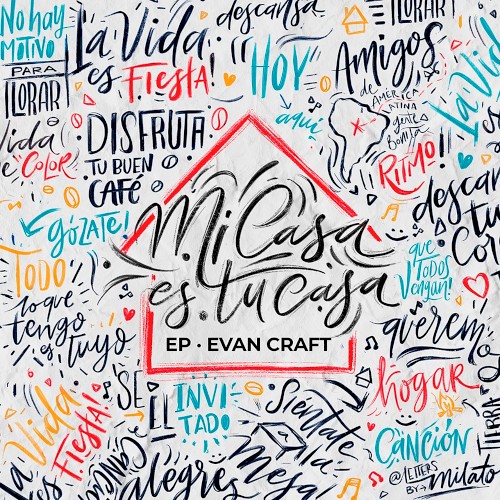 No hay
MOTIVO
PARA
LLORAR
La Vida
es FIESTA!
descansa
HOY
aquí
Amigos
de AMÉRICA
LATINA
gente
Bonita
CANCIÓN
LLORAR
La Vida
RITMO!!
Vida
COLOR
DISFRUTA
TU BUEN
CAFÉ
GÓZATE!
descansa
tu
Cor
TODO
lo que
tengo
es tuyo
Mi Casa
es tu casa
EP · EVAN CRAFT
que
TODOS
Vengan!
queremo
hogar
La Vida
FIESTA!
SÉ
EL
INVI
TADO
Siéntate
a la
Mesa
alegres
CANCIÓN
LLORAR
@LETTERS
BY→Milato